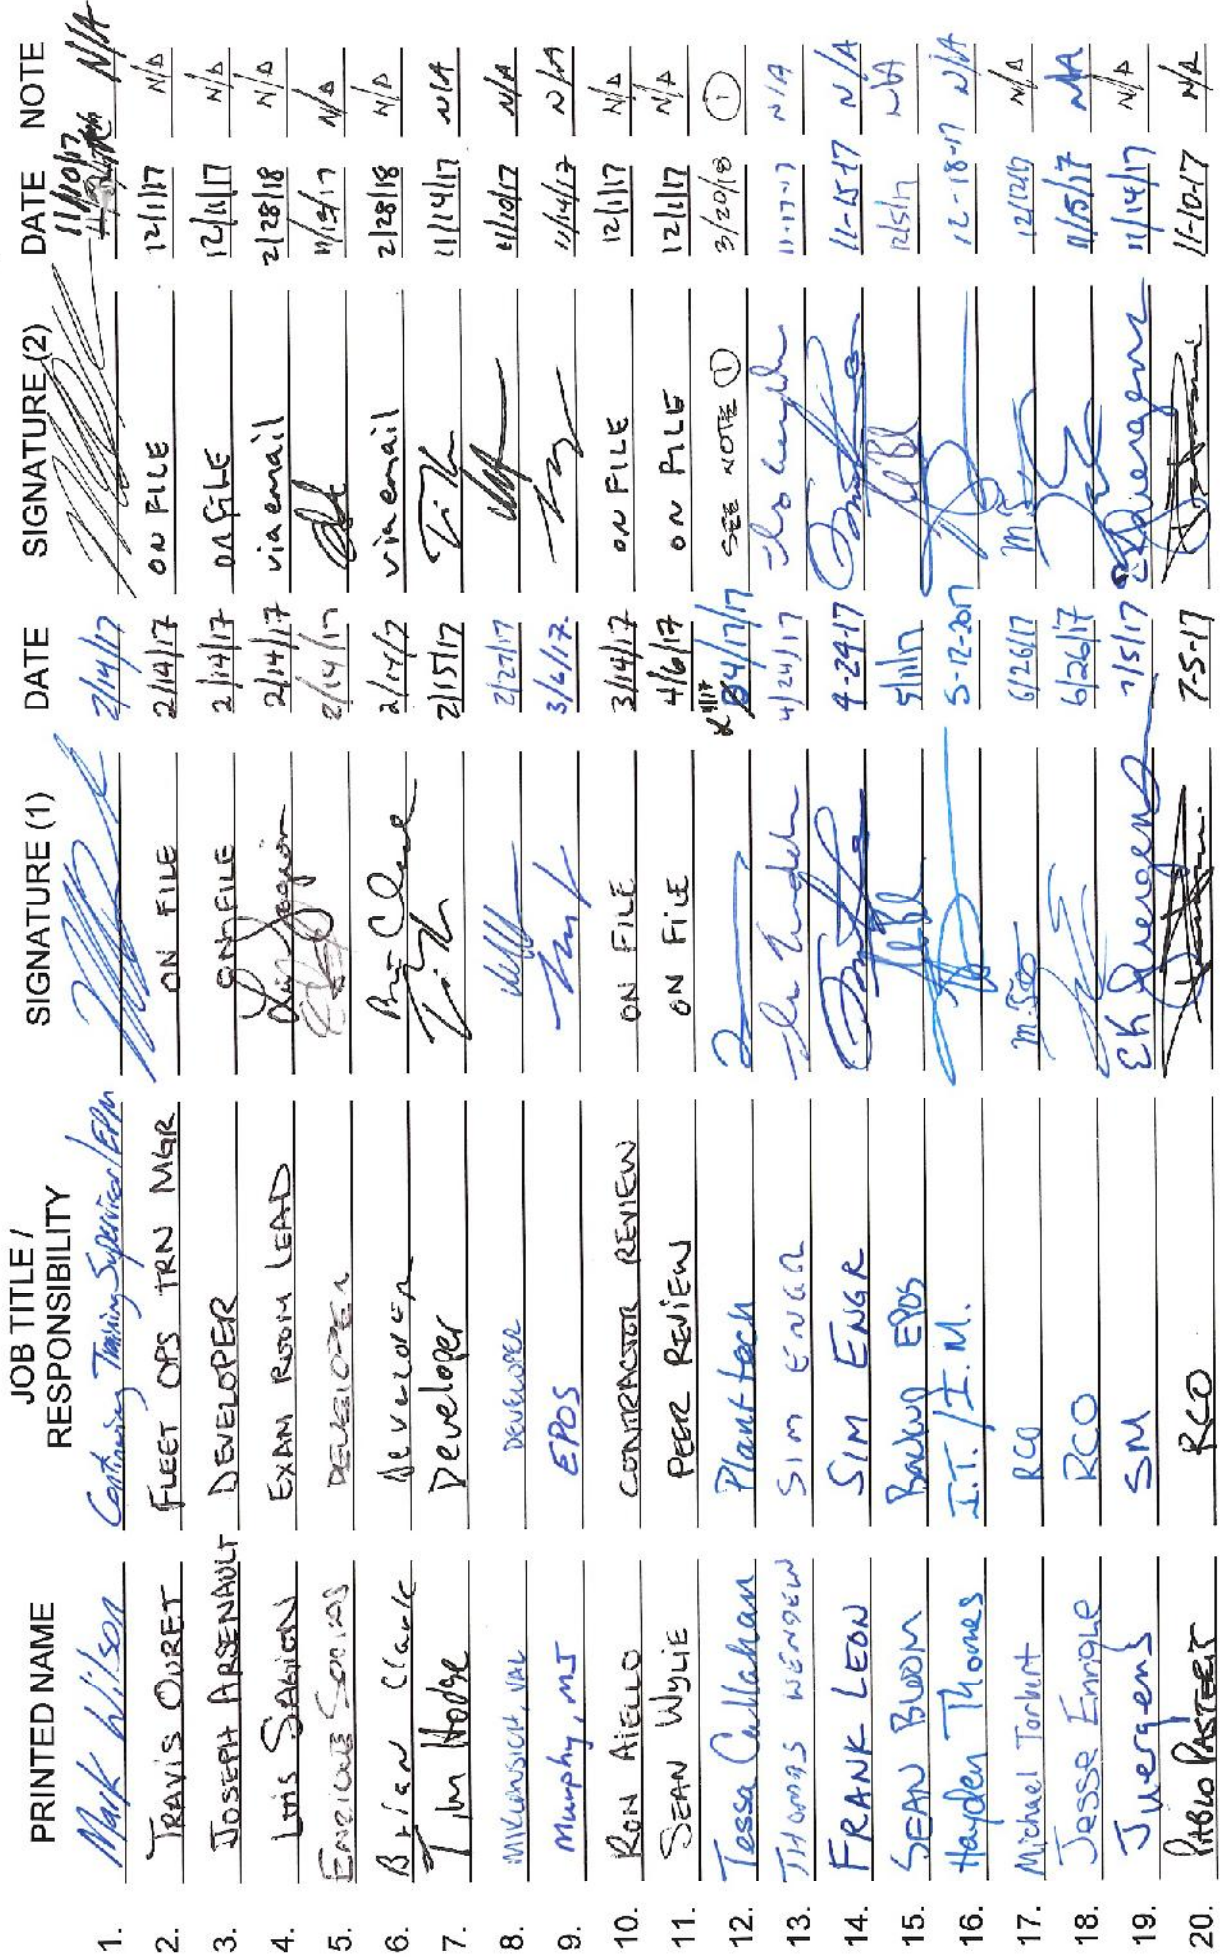 PRINTED NAME JOB TITLE / RESPONSIBILITY SIGNATURE (1) DATE SIGNATURE (2) DATE NOTE
1. Mark Wilson Continuing Training Supervisor/EPM 2/14/17 11/10/17 N/A
2. TRAVIS OURET FLEET OPS TRN MGR ON FILE 2/14/17 ON FILE 12/1/17 N/A
3. JOSEPH ARSENAULT DEVELOPER ON FILE 2/14/17 ON FILE 12/1/17 N/A
4. Luis SAGION EXAM ROOM LEAD 2/14/17 via email 2/28/18 N/A
5. ENRIQUE DEVELOPER 2/14/17 N/A
6. Brian Clark developer 2/14/17 via email 2/28/18 N/A
7. Tim Hodge Developer 2/15/17 11/14/17 N/A
8. VAL DEVELOPER 2/27/17 11/10/17 N/A
9. Murphy, MJ EPOS 3/6/17 11/14/17 N/A
10. RON AIELLO CONTRACTOR REVIEW ON FILE 3/14/17 ON FILE 12/1/17 N/A
11. SEAN WYLIE PEER REVIEW ON FILE 4/6/17 ON FILE 12/1/17 N/A
12. Tessa Callahan Plant tech 4/17/17 SEE NOTE ① 3/20/18 ①
13. THOMAS SIM ENGR 4/24/17 11-17-17 N/A
14. FRANK LEON SIM ENGR 4-24-17 11-15-17 N/A
15. SEAN BLOOM Backup EPOS 5/1/17 12/5/17 N/A
16. Hayden Thomes I.T./I.M. 5-12-2017 12-18-17 N/A
17. Michael Torbert RCO 6/26/17 12/12/17 N/A
18. Jesse Enrique RCO 6/26/17 11/15/17 N/A
19. Juergens SM EK Juergens 7/5/17 EK Juergens 11/14/17 N/A
20. PABLO RCO 7-5-17 11-10-17 N/A